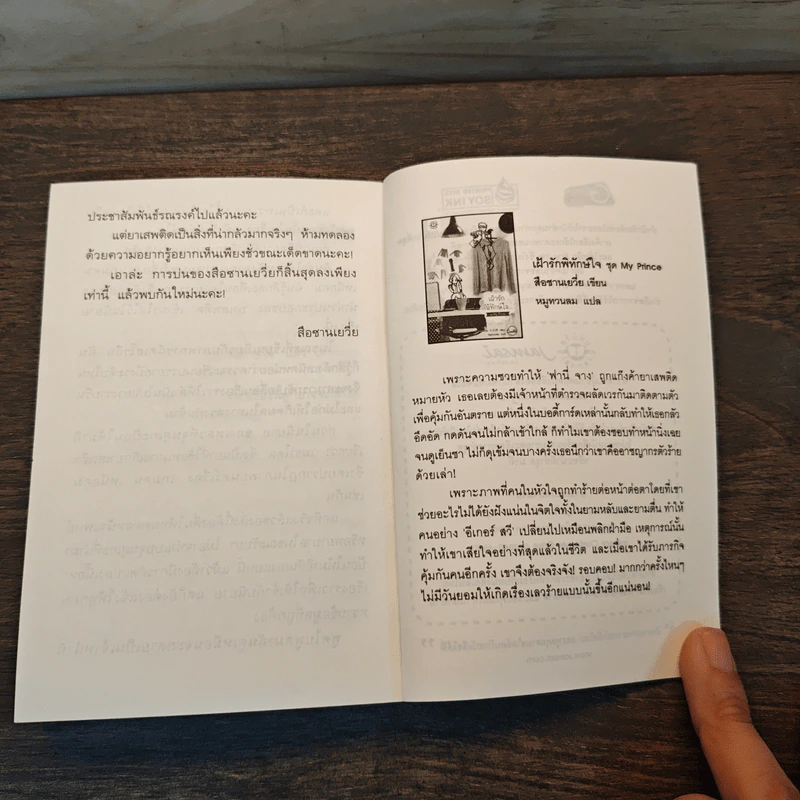 ประชาสัมพันธ์รณรงค์ไปแล้วนะคะ
แต่ยาเสพติดเป็นสิ่งที่น่ากลัวมากจริงๆ ห้ามทดลอง
ด้วยความอยากรู้อยากเห็นเพียงชั่วขณะเด็ดขาดนะคะ!
เอาล่ะ การบ่นของสือซานเยวี่ยก็สิ้นสุดลงเพียง
เท่านี้ แล้วพบกันใหม่นะคะ!
สือซานเยวี่ย
เฝ้ารักพิทักษ์ใจ ชุด My Prince
สือซานเยวี่ย เขียน
หมูทวนลม แปล
เฝ้ารัก
พิทักษ์ใจ
เพราะความซวยทำให้ 'ฟานี่ จาง' ถูกแก๊งค้ายาเสพติด
หมายหัว เธอเลยต้องมีเจ้าหน้าที่ตำรวจผลัดเวรกันมาติดตามตัว
เพื่อคุ้มกันอันตราย แต่หนึ่งในบอดี้การ์ดเหล่านั้นกลับทำให้เธอกลัว
อึดอัด กดดันจนไม่กล้าเข้าใกล้ ก็ทำไมเขาต้องชอบทำหน้านิ่งเฉย
จนดูเย็นชา ไม่ก็ดุเข้มจนบางครั้งเธอนึกว่าเขาคืออาชญากรตัวร้าย
ด้วยเล่า!
เพราะภาพที่คนในหัวใจถูกทำร้ายต่อหน้าต่อตาโดยที่เขา
ช่วยอะไรไม่ได้ยังฝังแน่นในจิตใจทั้งในยามหลับและยามตื่น ทำให้
คนอย่าง 'อีเกอร์ สวี' เปลี่ยนไปเหมือนพลิกฝ่ามือ เหตุการณ์นั้น
ทำให้เขาเสียใจอย่างที่สุดแล้วในชีวิต และเมื่อเขาได้รับภารกิจ
คุ้มกันคนอีกครั้ง เขาจึงต้องจริงจัง! รอบคอบ! มากกว่าครั้งไหนๆ
ไม่มีวันยอมให้เกิดเรื่องเลวร้ายแบบนั้นขึ้นอีกแน่นอน!